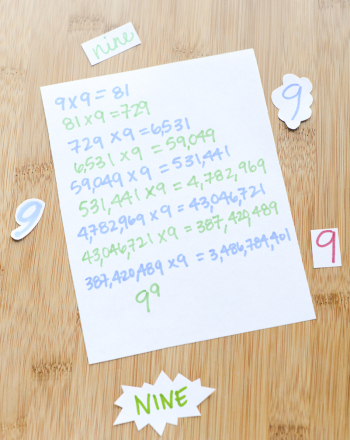 nine
9
9×9= 81
81×9 =729
729 ×9 =6,531
6,531 ×9 = 59,049
59,049 ×9 = 531,441
531,441 ×9 = 4,782,969
4,782,969 ×9 = 43,046,721
43,046,721 ×9 = 387,420,489
387,420,489 ×9 = 3,486,784,401
9⁹
9
9
NINE